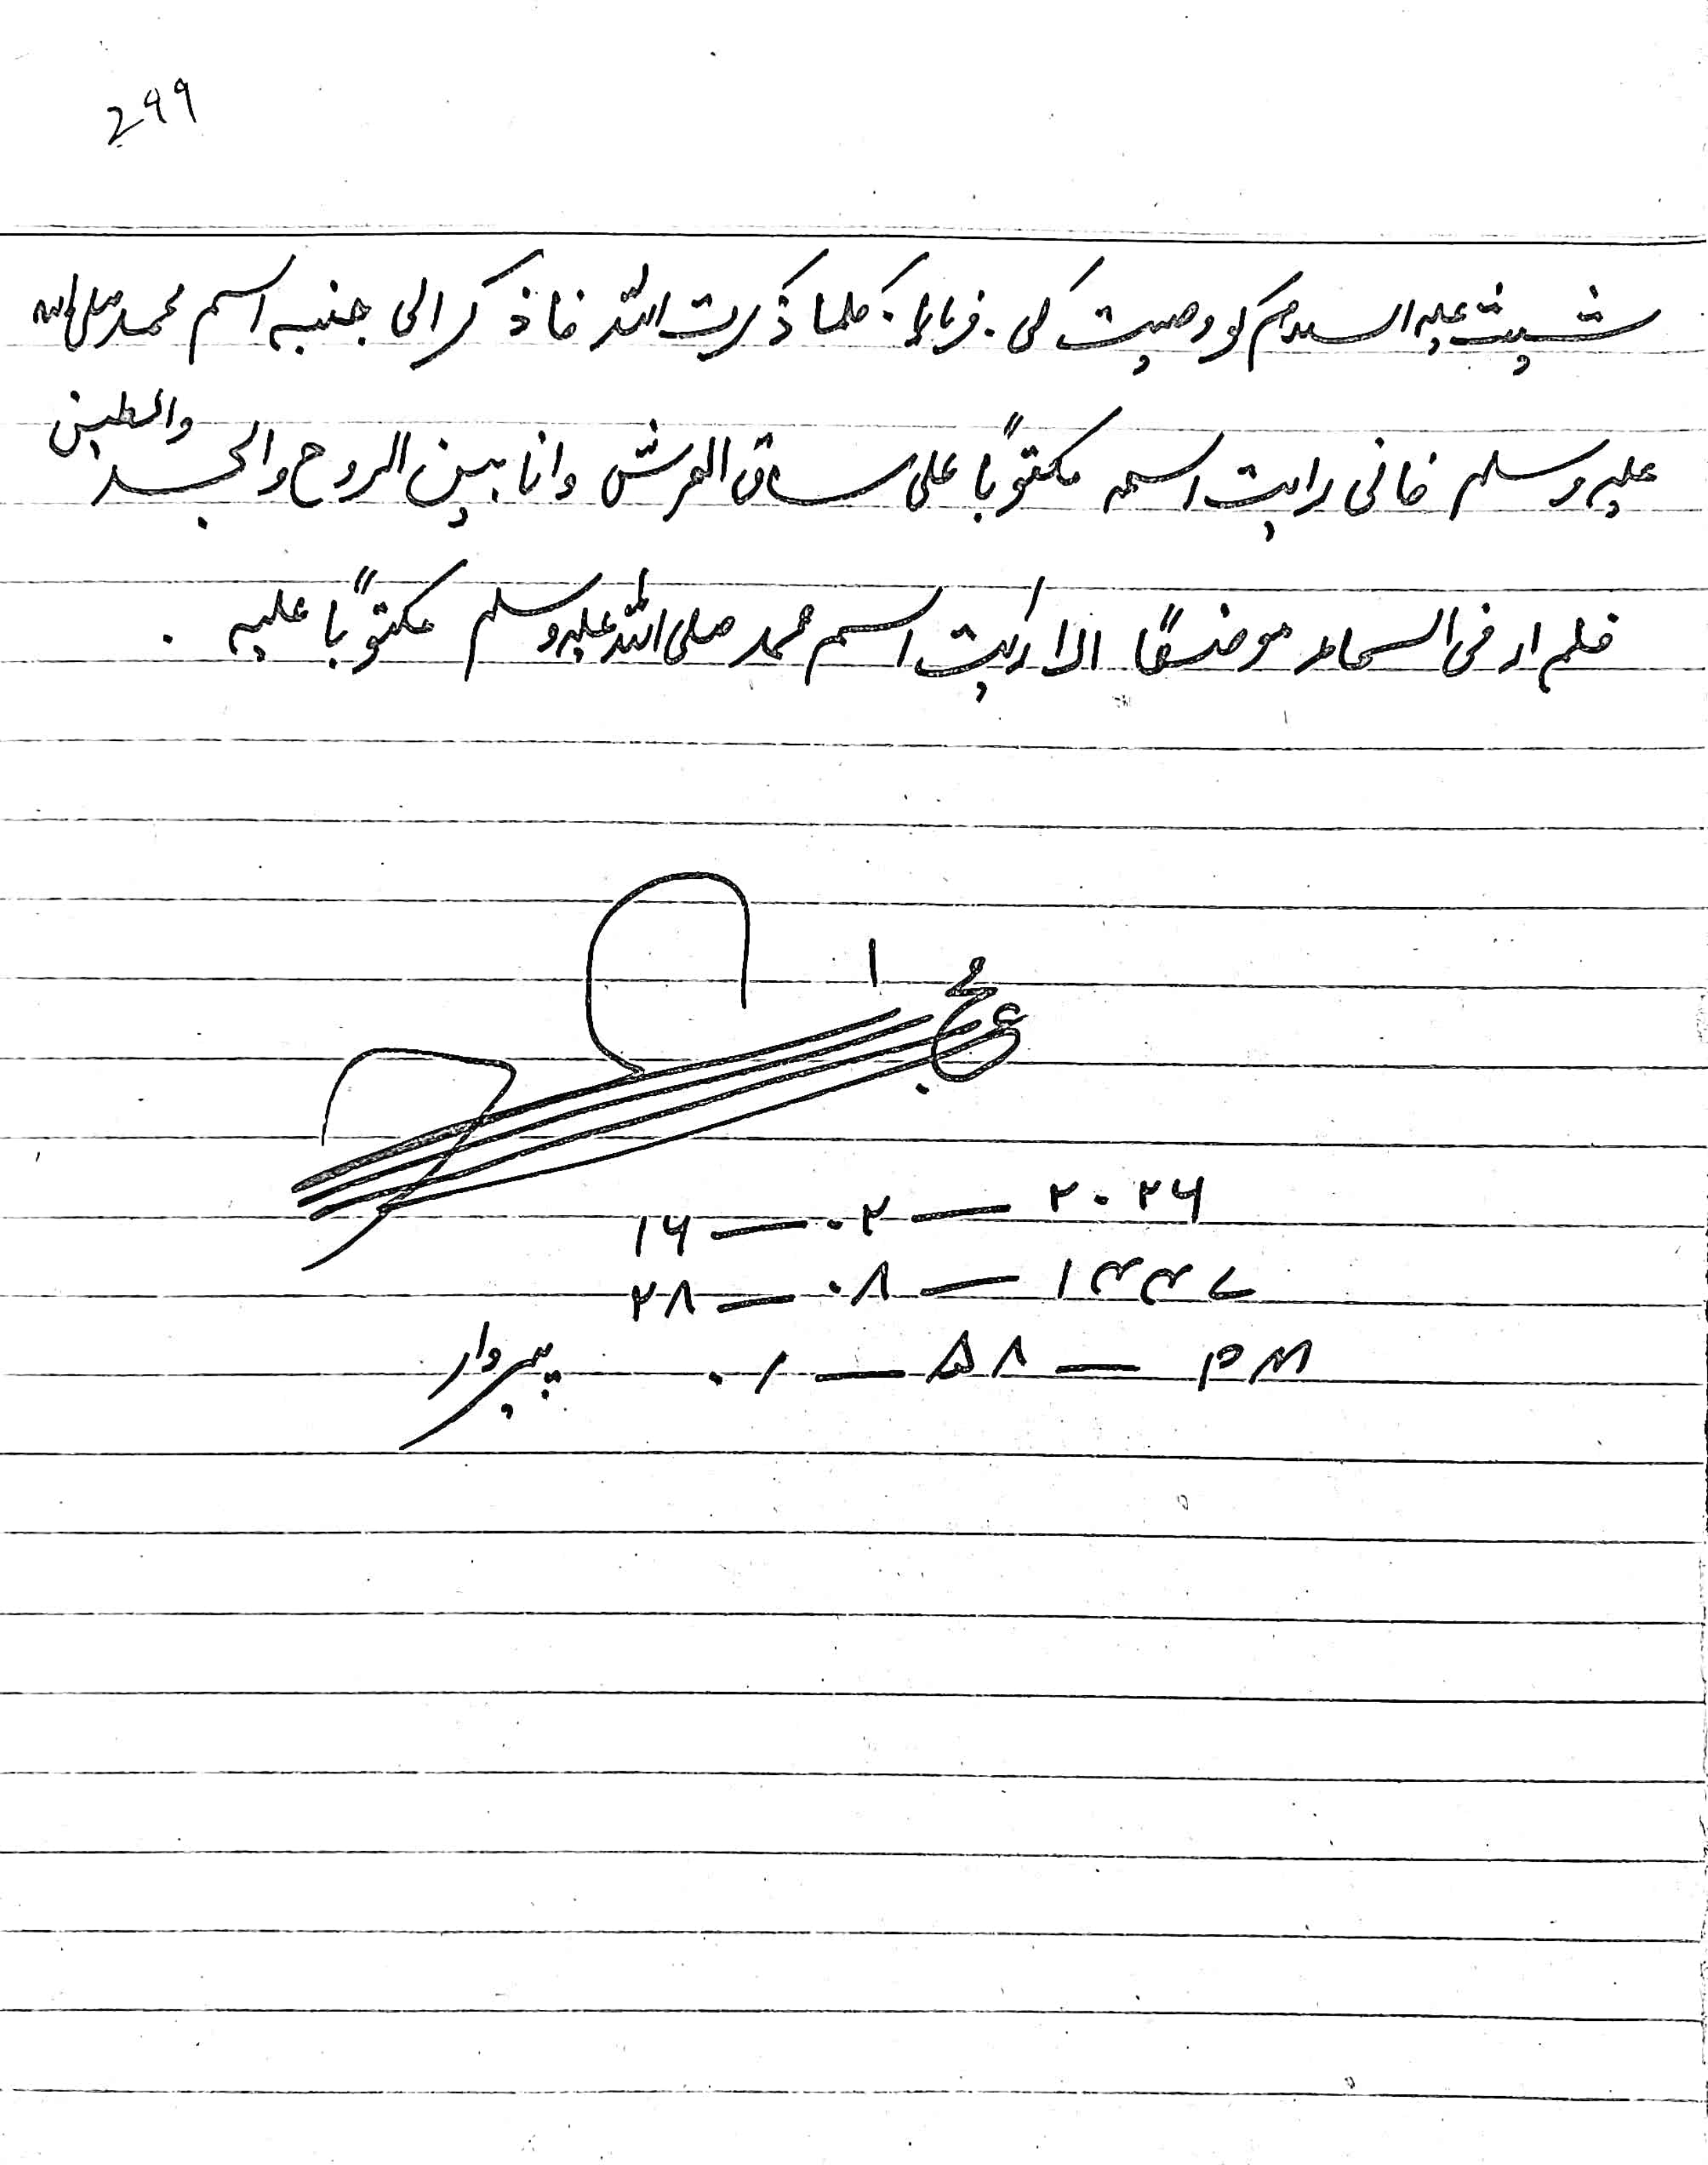 299
شیث علیہ السلام کو وصیت کی۔ فرمایا: کلما ذکرت اللہ فاذکر الی جنبہ اسم محمد صلی اللہ
علیہ وسلم فانی رایت اسمہ مکتوباً علی ساق العرش وانا بین الروح والجسد والطین
فلم ار فی السماء موضعًا الا رأیت اسم محمد صلی اللہ علیہ وسلم مکتوباً علیہ ۔
۱۶ — ۰۲ — ۲۰۲۶
۲۸ — ۰۸ — ۱۴۴۷
۰۱ — ۵۸ — PM پیر وار